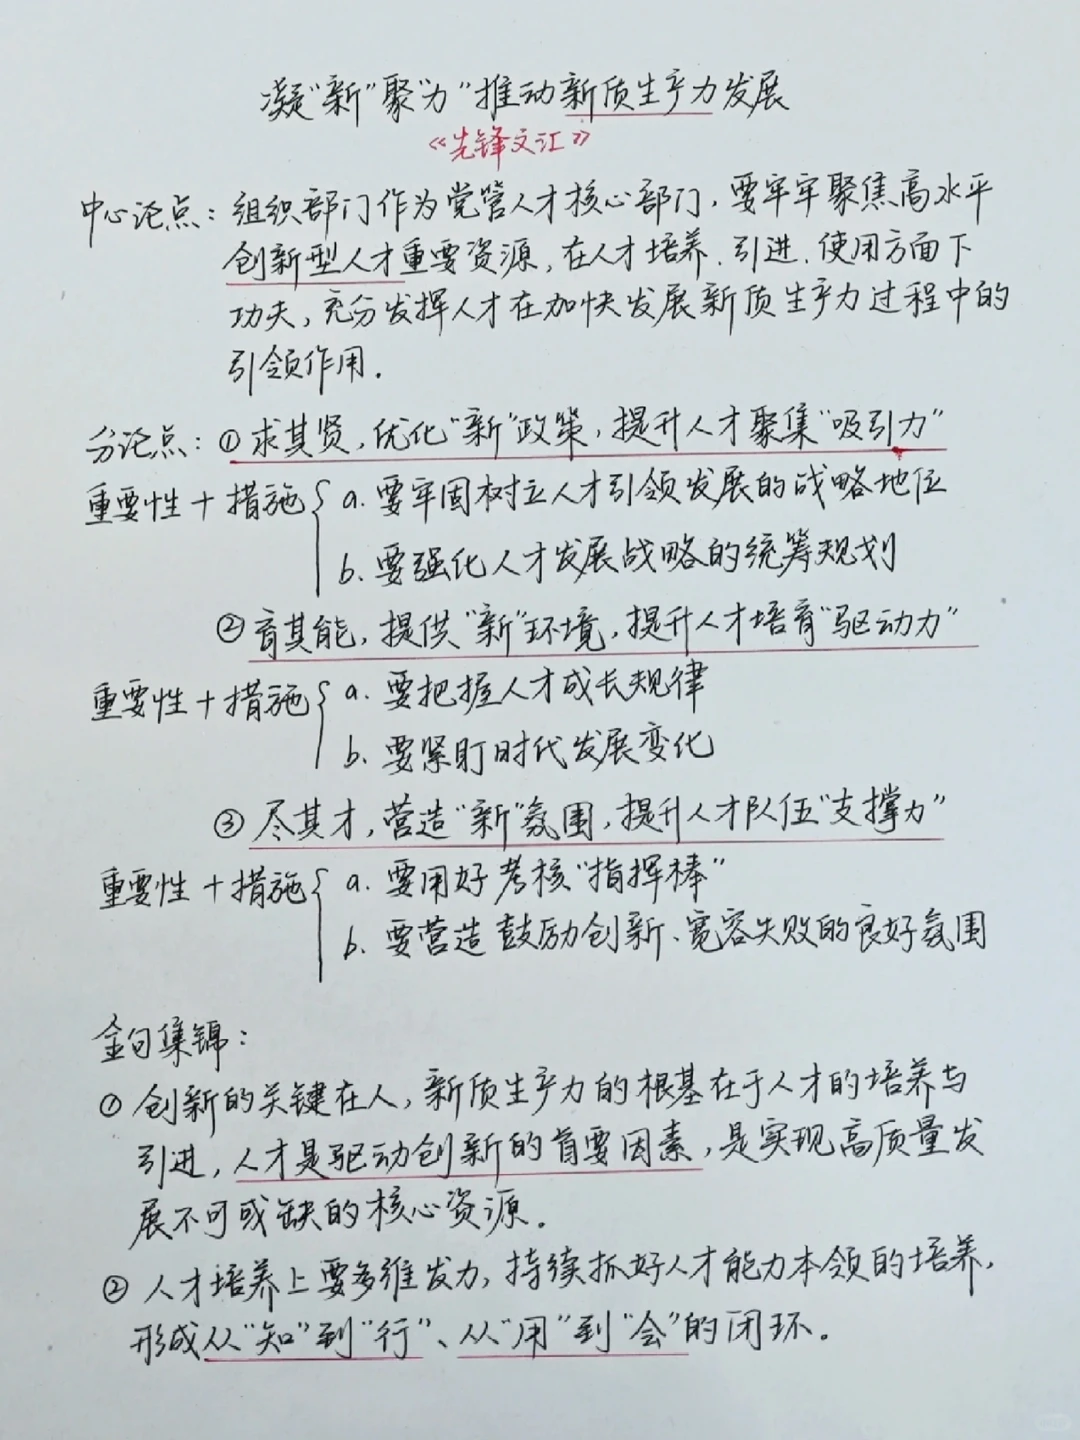 凝"新"聚"力"推动新质生产力发展
《先锋文汇》
中心论点：组织部门作为党管人才核心部门，要牢牢聚焦高水平
创新型人才重要资源，在人才培养、引进、使用方面下
功夫，充分发挥人才在加快发展新质生产力过程中的
引领作用.
分论点：①求其贤，优化"新"政策，提升人才聚集"吸引力"
重要性＋措施 a. 要牢固树立人才引领发展的战略地位
b. 要强化人才发展战略的统筹规划
②育其能，提供"新"环境，提升人才培育"驱动力"
重要性＋措施 a. 要把握人才成长规律
b. 要紧盯时代发展变化
③尽其才，营造"新"氛围，提升人才队伍"支撑力"
重要性＋措施 a. 要用好考核"指挥棒"
b. 要营造鼓励创新、宽容失败的良好氛围
金句集锦：
① 创新的关键在人，新质生产力的根基在于人才的培养与
引进，人才是驱动创新的首要因素，是实现高质量发
展不可或缺的核心资源.
② 人才培养上要多维发力，持续抓好人才能力本领的培养，
形成从"知"到"行"、从"用"到"会"的闭环.